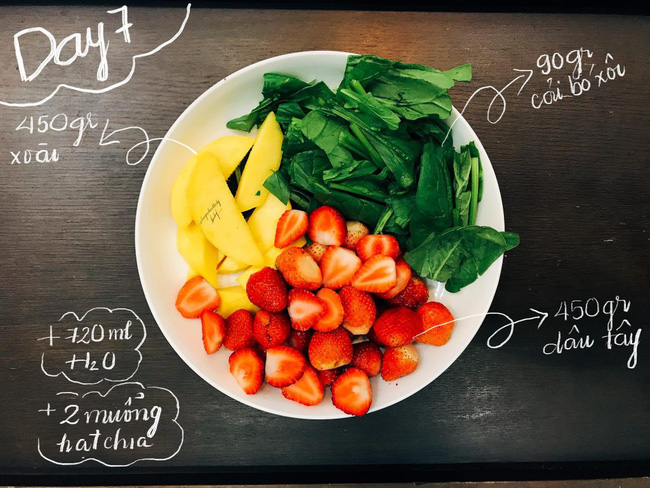 Day 7
90gr
cải bó xôi
450gr
xoài
450gr
dâu tây
+ 720 ml
H₂O
+ 2 muỗng
hạt chia